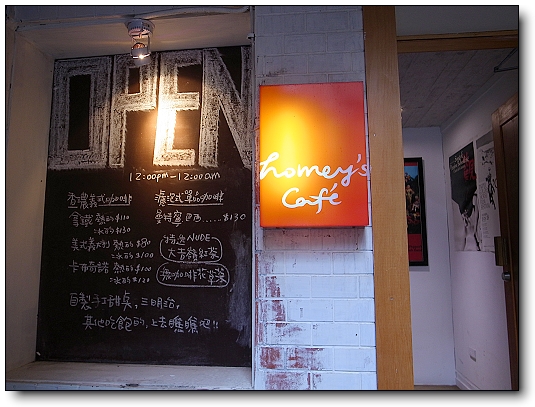 OPEN
12:00pm-12:00am
香濃義式咖啡
拿鐵 熱的$110
冰的$130
美式義大利 熱的$80
冰的$100
卡布奇諾 熱的$100
冰的$120
濾泡式單品咖啡
曼特寧 巴西......$130
特選NUDE
大吉嶺紅茶
無咖啡花草茶
自製手工甜點,三明治,
其他吃飽的,上去瞧瞧吧!!
homey's
Café